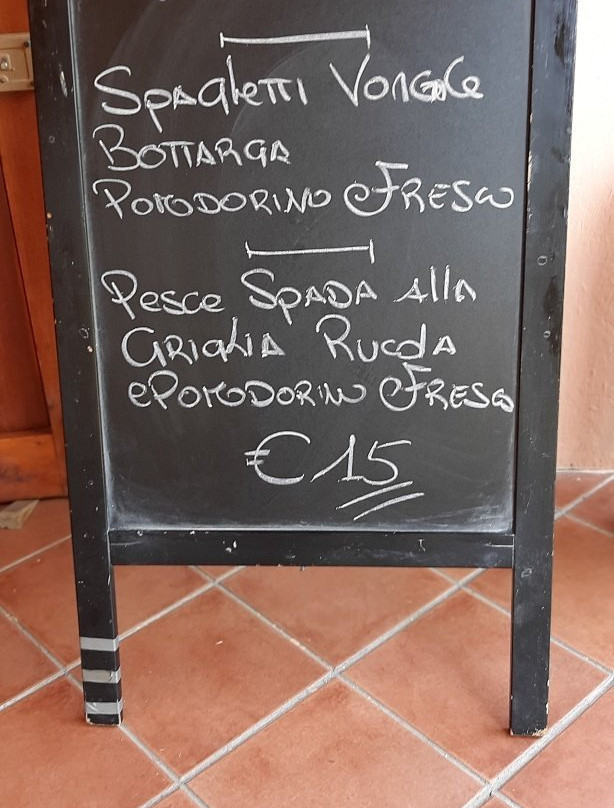 Spaghetti Vongole
Bottarga
Pomodorino Fresco
Pesce Spada alla
Griglia Rucola
e Pomodorino Fresco
€ 15